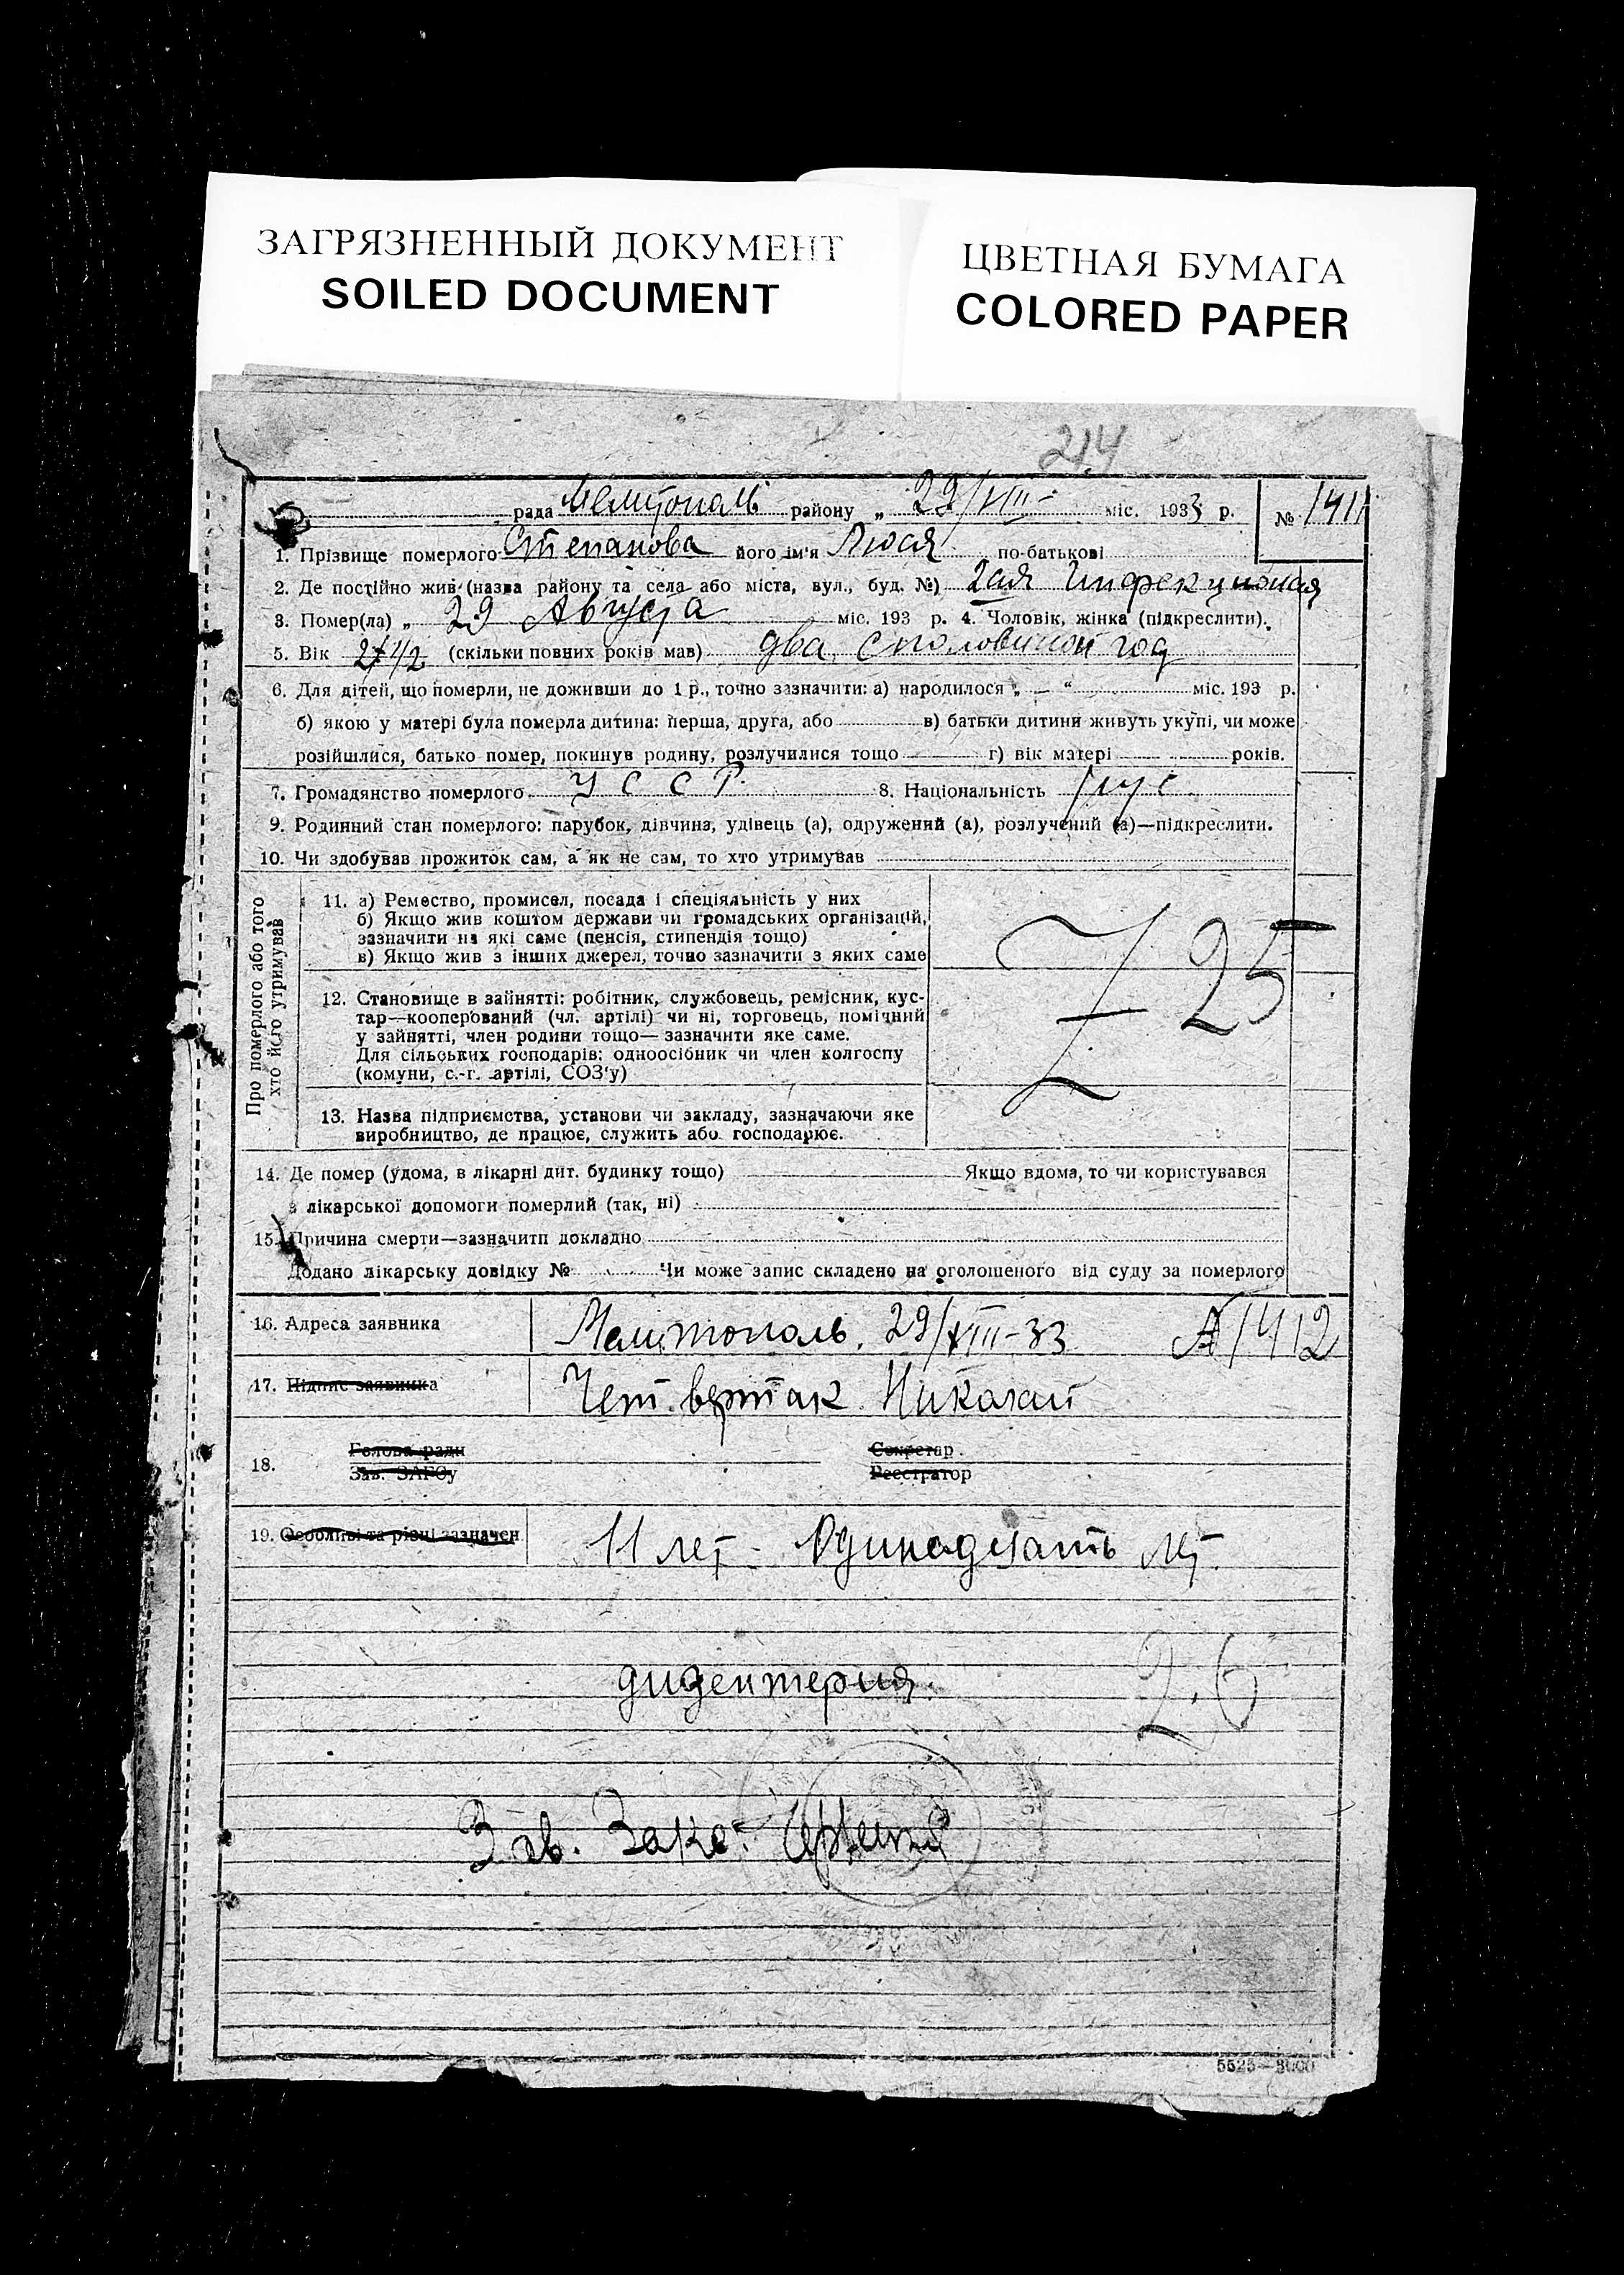 ЗАГРЯЗНЕННЫЙ ДОКУМЕНТ
SOILED DOCUMENT
ЦВЕТНАЯ БУМАГА
COLORED PAPER
214
рада Мелитополь району „ 29/VIII- міс. 1933 р. № 1411
1. Прізвище померлого Степанова його ім'я Люся по-батькові
2. Де постійно жив (назва району та села або міста, вул., буд. №) 2ая Инфекционая
3. Помер(ла) „ 29 Августа міс. 193 р. 4. Чоловік, жінка (підкреслити).
5. Вік 2 1/2 (скільки повних років мав) два с половиной год
6. Для дітей, що померли, не доживши до 1 р., точно зазначити: а) народилося „ — “ міс. 193 р.
б) якою у матері була померла дитина: перша, друга, або в) батьки дитини живуть укупі, чи може
розійшлися, батько помер, покинув родину, розлучилися тощо г) вік матері років.
7. Громадянство померлого УССР 8. Національність рус
9. Родинний стан померлого: парубок, дівчина, удівець (а), одружений (а), розлучений (а)—підкреслити.
10. Чи здобував прожиток сам, а як не сам, то хто утримував
Про померлого або того
хто його утримував
11. а) Ремество, промисел, посада і спеціяльність у них
б) Якщо жив коштом держави чи громадських організацій,
зазначити на які саме (пенсія, стипендія тощо)
в) Якщо жив з інших джерел, точно зазначити з яких саме
25
12. Становище в зайнятті: робітник, службовець, ремісник, кус-
тар—кооперований (чл. артілі) чи ні, торговець, помічний
у зайнятті, член родини тощо— зазначити яке саме.
Для сільських господарів: одноосібник чи член колгоспу
(комуни, с.-г. артілі, СОЗ'у)
13. Назва підприємства, установи чи закладу, зазначаючи яке
виробництво, де працює, служить або господарює.
14. Де помер (удома, в лікарні дит. будинку тощо) Якщо вдома, то чи користувався
з лікарської допомоги померлий (так, ні)
15. Причина смерти—зазначити докладно
Додано лікарську довідку № Чи може запис складено на оголошеного від суду за померлого
16. Адреса заявника Мелитополь. 29/VIII-33 1412
17. Підпис заявника Четвертак Николай
18. Голова ради Секретар
Зав. ЗАГСу Реєстратор
19. Особливі та різні зазначен. 11 лет - Одинадцать лет.
дидентерия.
2.6
Зав. Загс:
5525—3000